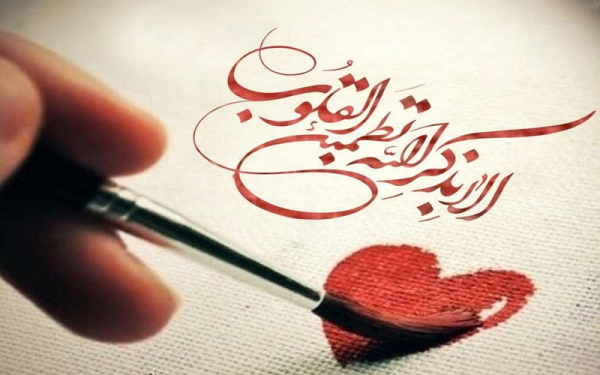 الا بذکرِ الله تَطمئن القلوبُ